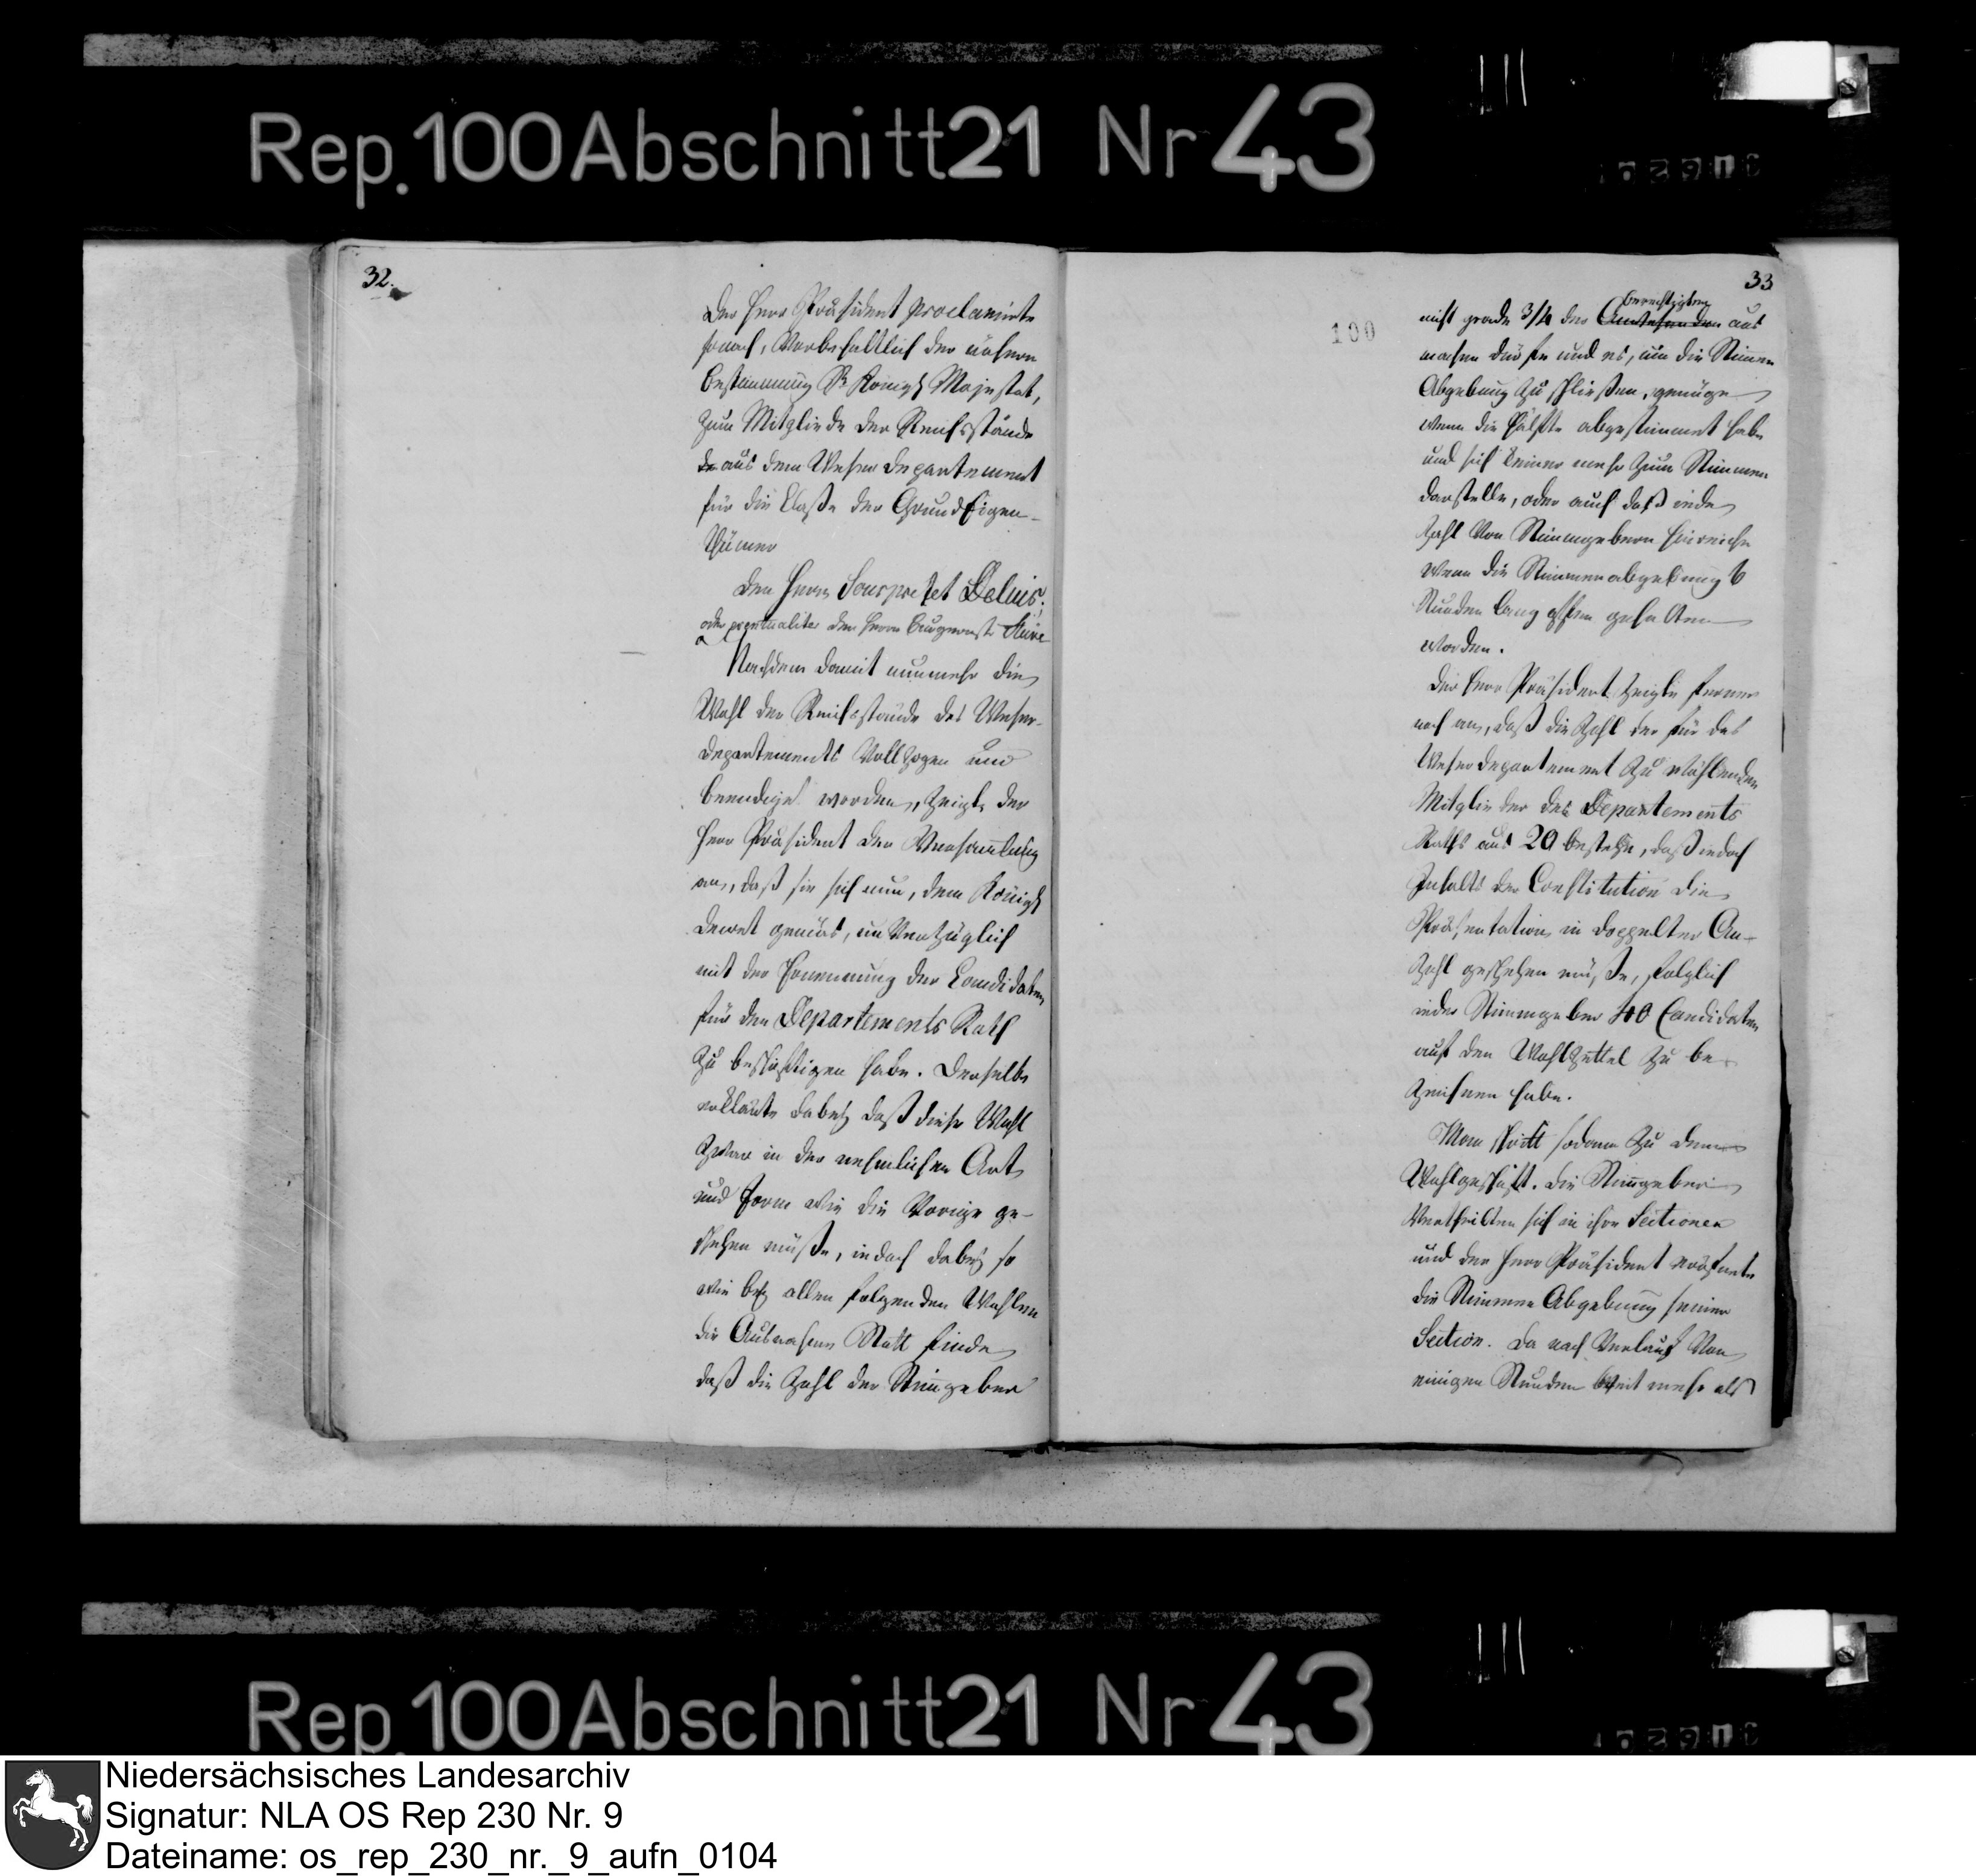 Rep. 100 Abschnitt 21 Nr 43
32.
Der Herr Präsident proclamirte
sonach, Vorbehaltlich der nähern
Bestimmung Sr Königl Majestät,
zum Mitgliede der Reichsstände
de aus dem Weser Departement
für die Classe der GrundEigen-
thümer
den Herrn Souspréfet Delius;
oder eventualiter den Herrn Burgermstr Stüve
Nachdem damit nunmehr die
Wahl der Reichsstände des Weser-
departements Vollzogen und
beendigt worden, zeigte der
Herr Präsident der Versammlung
an, daß sie sich nun, dem Königl
Decret gemäs, unVerzüglich
mit der Ernennung der Candidaten
für den Departements Rath
zu beschäftigen habe. Derselbe
erklärte dabey daß diese Wahl
zwar in der nehmlichen Art
und Form wie die Vorige ge-
schehen müße, jedoch dabey so
wie bey allen folgenden Wahlen
die Ausnahme Statt finde
daß die Zahl der Stimgeber
33
100
berechtigten
nicht grade 3/4 der Anwesenden aus
machen dürfe und es, um die Stimen
Abgebung zu schließen, genüge
wenn die Hälfte abgestimmet habe
und sich keiner mehr zum Stimmen
darstelle, oder auch daß jede
Zahl Von Stimmgebern hinreiche
wenn die Stimmenabgebung 6
Stunden lang offen gehalten
worden.
Der Herr Präsident zeigte ferner
noch an, daß die Zahl der für das
Weserdepartement zu wählenden
Mitglieder des Departements
Raths aus 20 bestehe, daß jedoch
Inhalts der Constitution die
Präsentation in doppelter An-
zahl geschehen müße, folglich
jeder Stimmgeber 40 Candidaten
auf den Wahlzettel zu be-
zeichnen habe.
Man schritt sodann zu dem
Wahlgeschäft. Die Stimgeber
Vertheilten sich in ihre Sectionen
und der Herr Präsident eröfnete
die Stimmen Abgebung seiner
Section. Da nach Verlauf Von
einigen Stunden weit mehr als
Rep. 100 Abschnitt 21 Nr 43
Niedersächsisches Landesarchiv
Signatur: NLA OS Rep 230 Nr. 9
Dateiname: os_rep_230_nr._9_aufn_0104